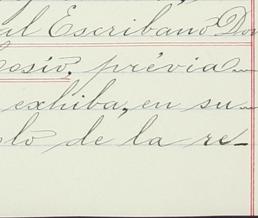 al Escribano Don
casio, prévia
exhiba, en su
de la re-